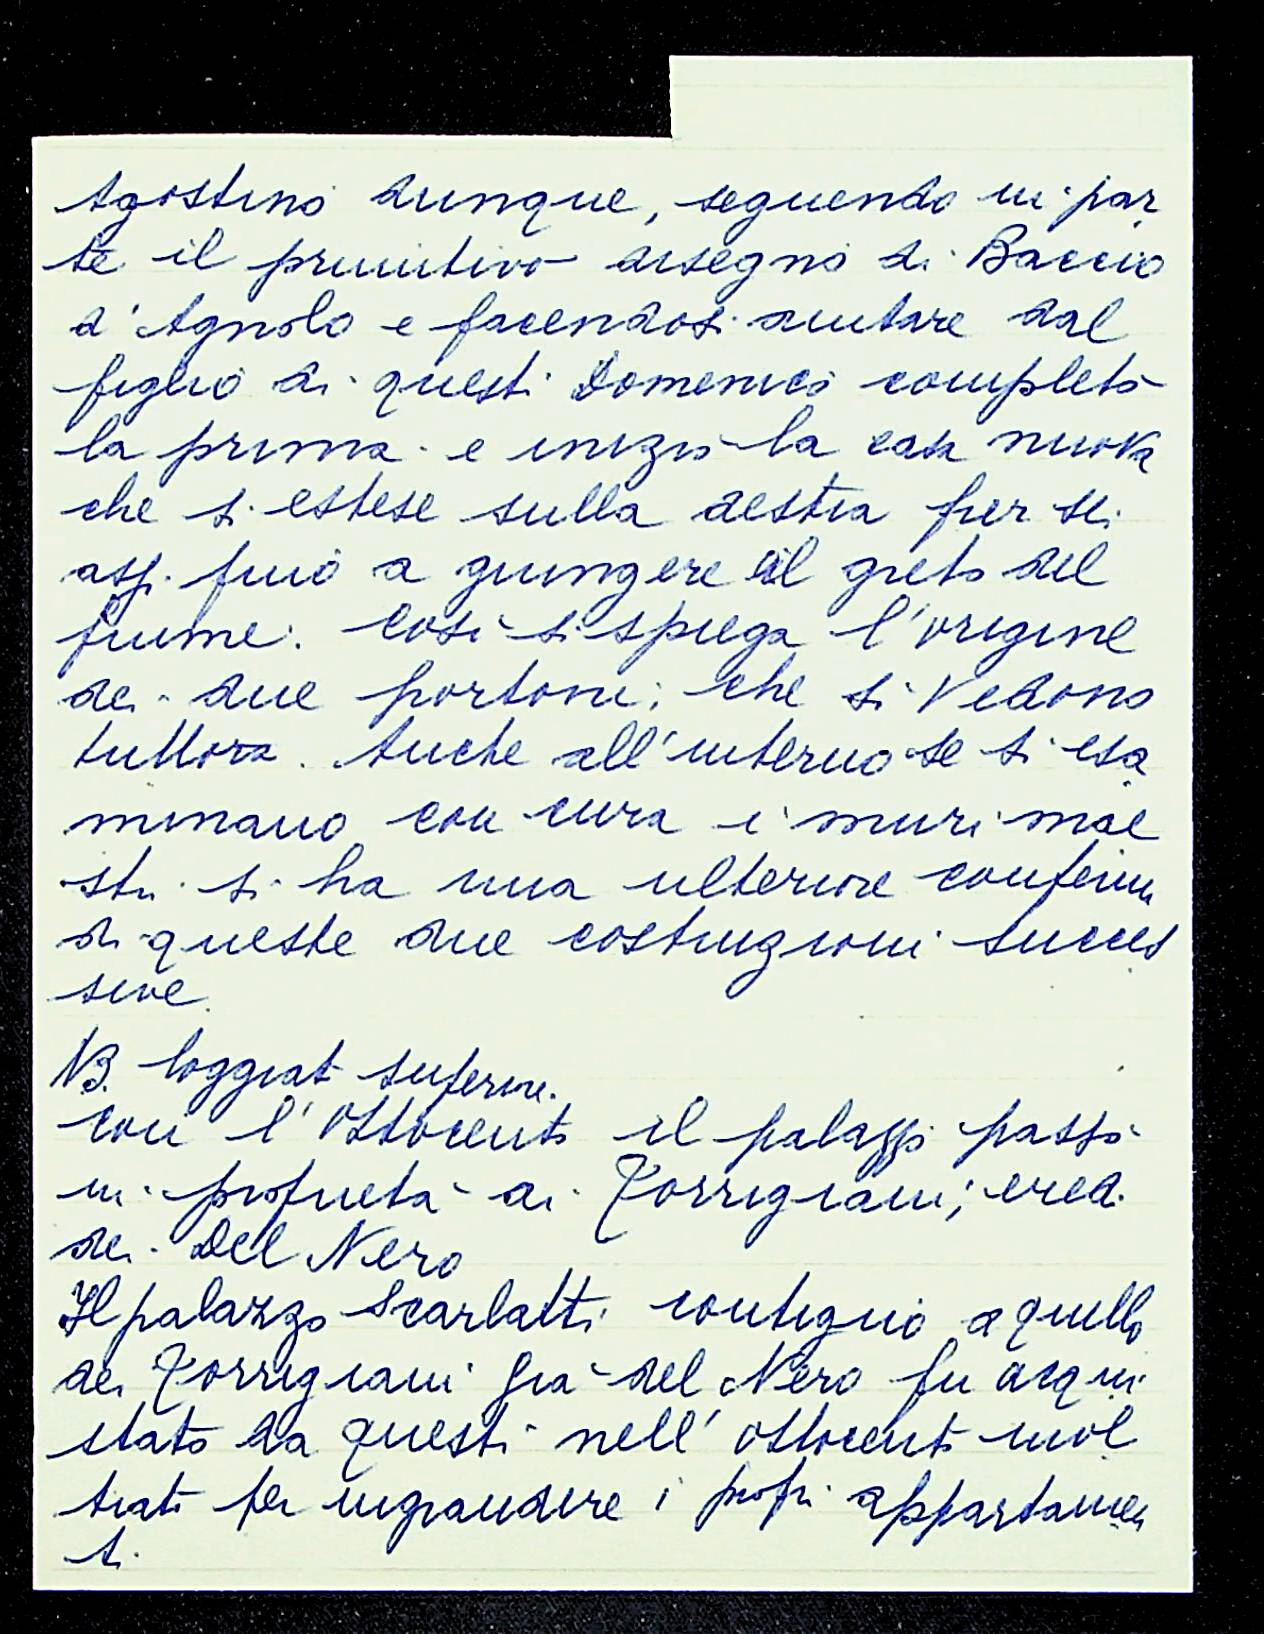 Agostino dunque, seguendo in par
te il primitivo disegno di Baccio
d'Agnolo e facendosi aiutare dal
figlio di questi Domenico completò
la prima e iniziò la casa nuova
che si estese sulla destra per se
asp. fino a giungere al greto del
fiume. Così si spiega l'origine
dei due portoni, che si vedono
tuttora. Anche all'interno se si esa
minano con cura i muri mae
stri si ha una ulteriore conferma
di queste due costruzioni succes
sive.
NB. loggiat superiore.
Con l'Ottocento il palazzo passò
in proprietà ai Torrigiani, eredi
dei Del Nero
Il palazzo Scarlatti contiguo a quello
dei Torrigiani già del Nero fu acqui
stato da questi nell'ottocento inol
trato per ingrandire i propri appartamen
ti.